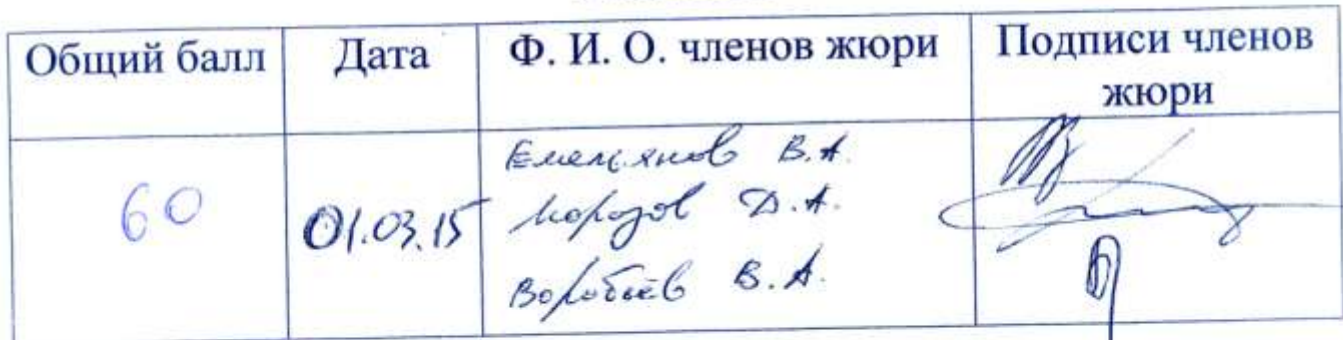 Общий балл
Дата
Ф. И. О. членов жюри
Подписи членов
жюри
60
01.03.15
Емельянов В.А.
Морозов Д.А.
Воробьёв В.А.